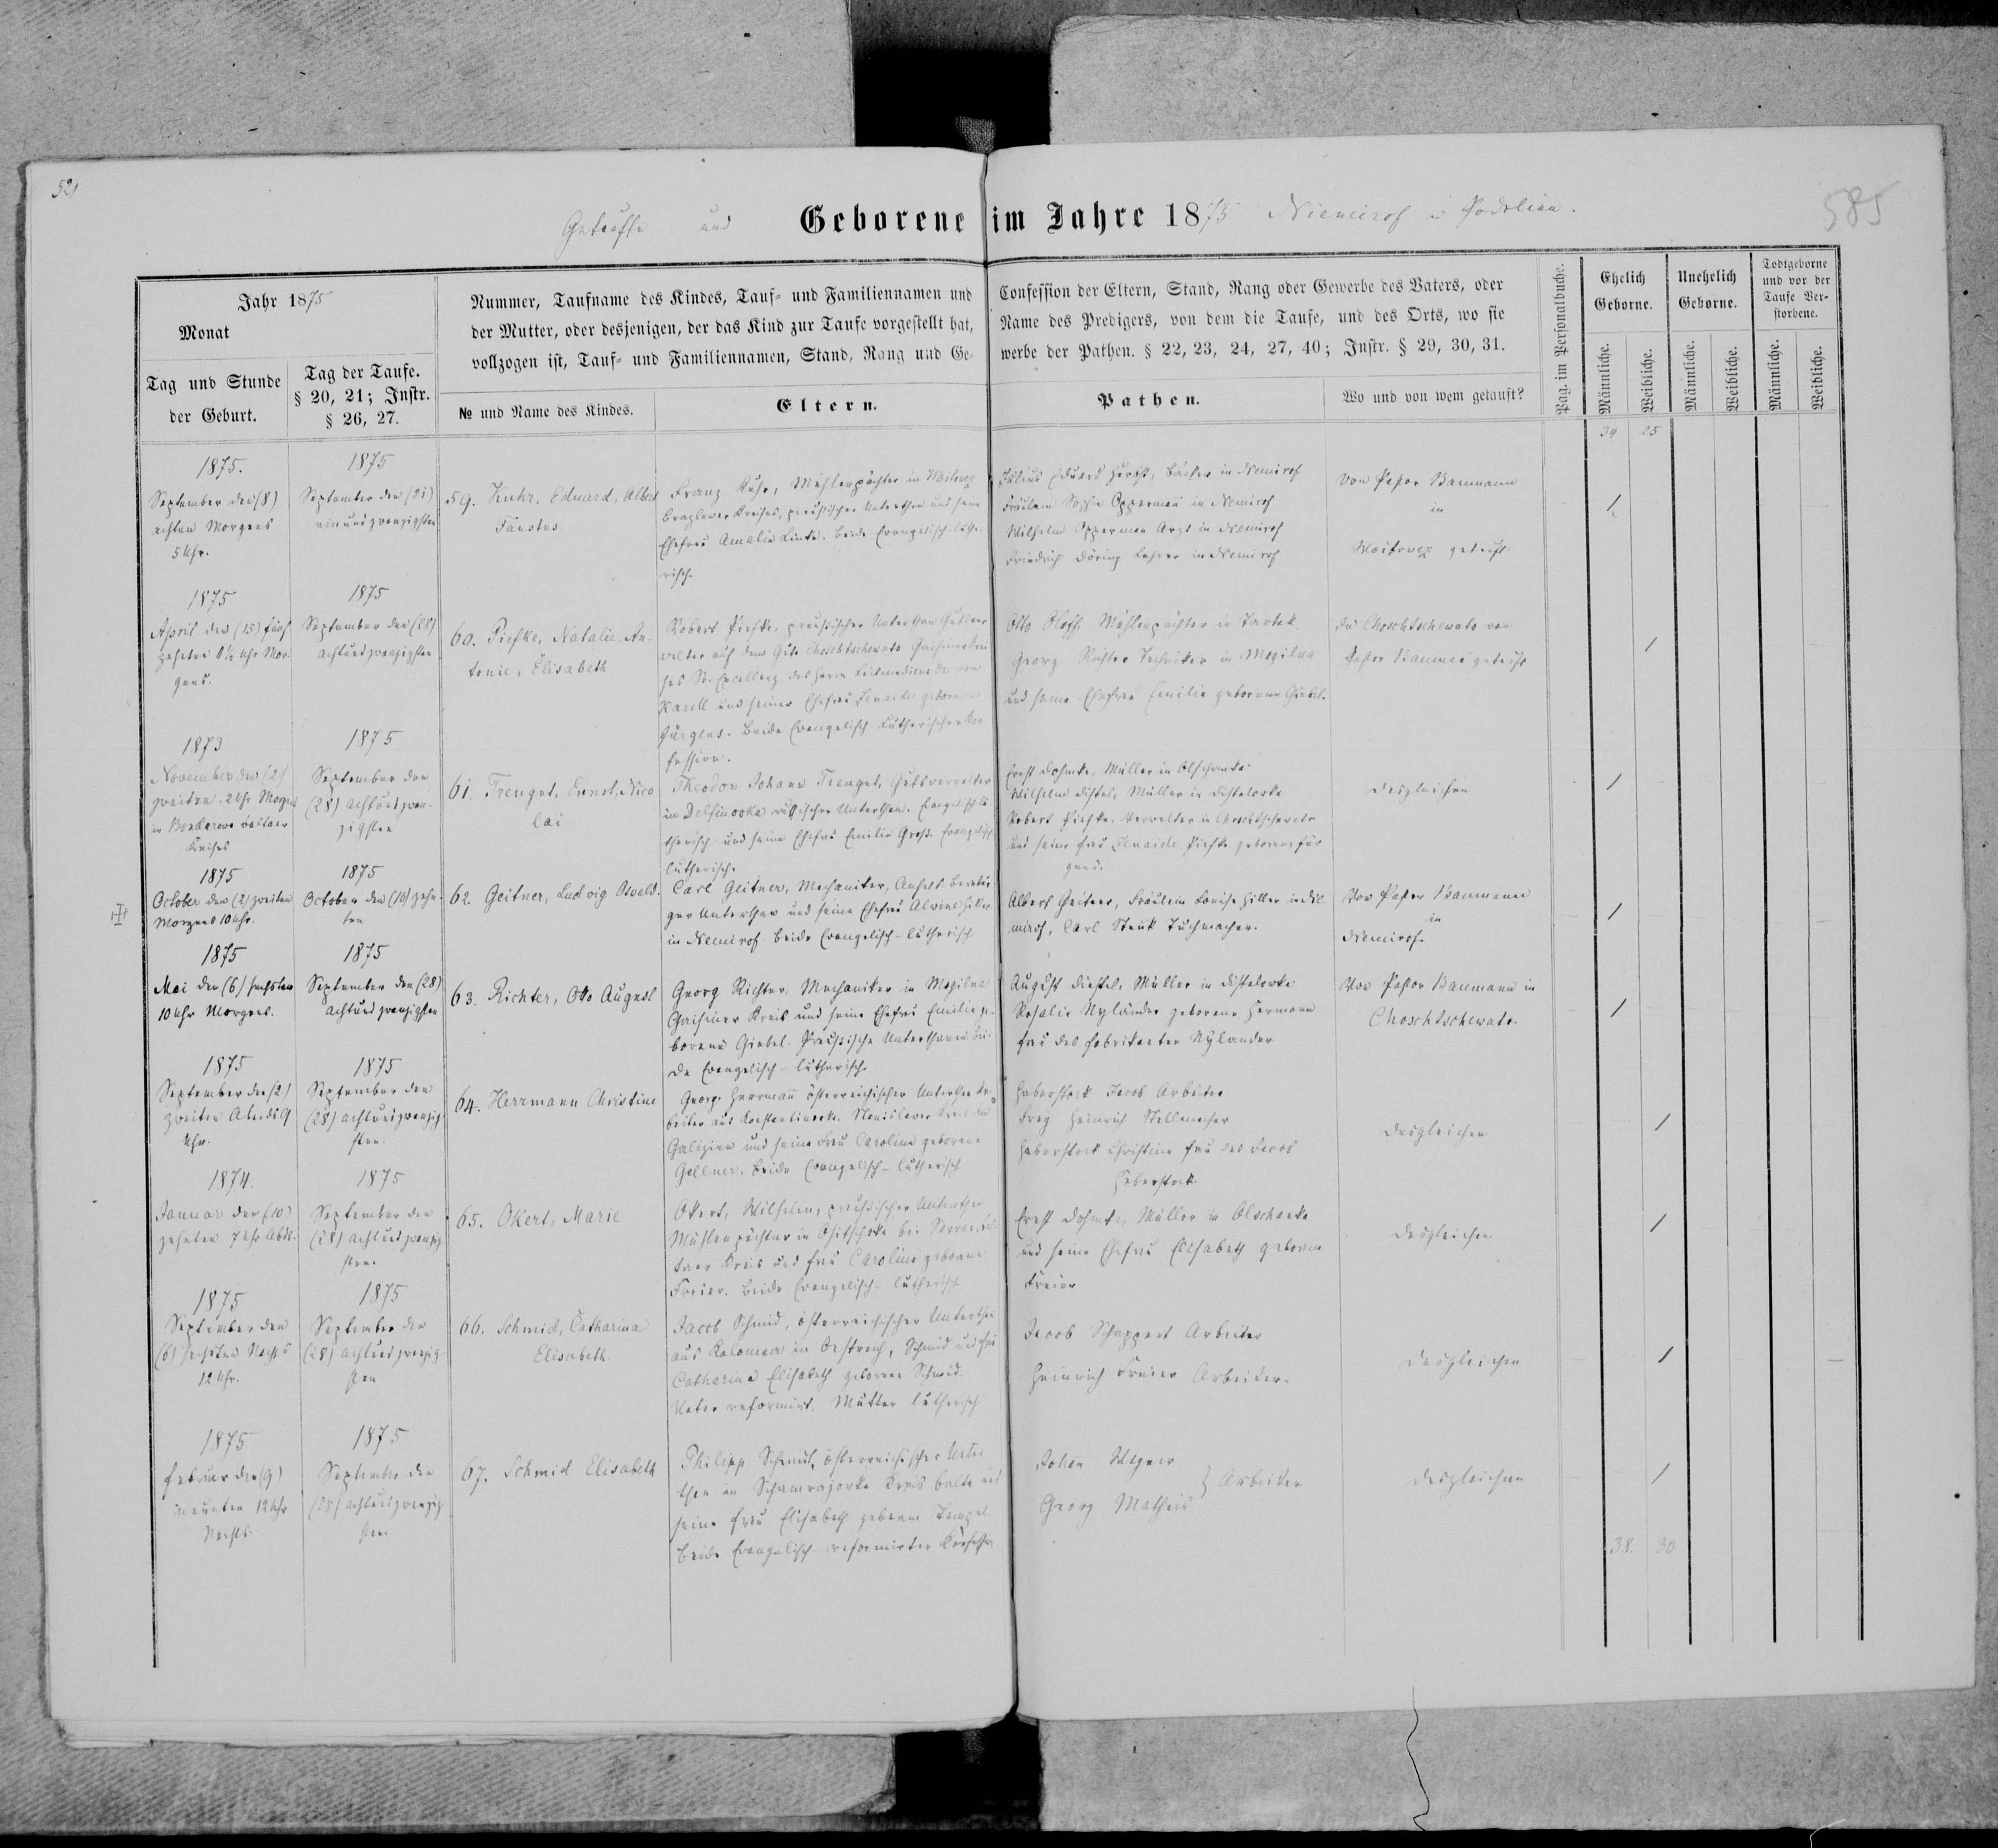 521
585
Getaufte und Geborene im Jahre 1875 Niemirof in Podolien.
Jahr 1875
Monat
Tag und Stunde
der Geburt.
Tag der Taufe.
§ 20, 21; Instr.
§ 26, 27.
Nummer, Taufname des Kindes, Tauf- und Familiennamen und
der Mutter, oder desjenigen, der das Kind zur Taufe vorgestellt hat,
vollzogen ist, Tauf- und Familiennamen, Stand, Rang und Ge-
№ und Name des Kindes.
Eltern.
Confession der Eltern, Stand, Rang oder Gewerbe des Vaters, oder
Name des Predigers, von dem die Taufe, und des Orts, wo sie
werbe der Pathen. § 22, 23, 24, 27, 40; Instr. § 29, 30, 31.
Pathen.
Wo und von wem getauft?
Pag. im Personalbuche.
Ehelich
Geborne.
Unehelich
Geborne.
Todtgeborne
und vor der
Taufe Ver-
storbene.
Männliche.
Weibliche.
Männliche.
Weibliche.
Männliche.
Weibliche.
34 25
1875.
September den (8)
achten Morgens
5 Uhr.
1875
September den (21)
einundzwanzigsten
59. Kuhr, Eduard, Albert
Faustus.
Franz Kuhr, Mühlenpächter in Woitowez
Brazlawer Kreises, preußischer Unterthan und seine
Ehefrau Amalie Linke. beide Evangelisch-luthe-
risch.
Julius Eduard Herbst, Bäcker in Nemirof
Fräulein Sophie Opperman in Nemirof
Wilhelm Opperman Arzt in Nemirof
Friedrich Döring Lehrer in Nemirof
Von Pastor Baumann
in
Woitovez getauft.
1
1875
April den (15) fünf
zehnten 8½ Uhr Mor-
gens.
1875
September den (28)
achtundzwanzigsten
60. Piefke, Natalie, An-
tonie, Elisabeth
Robert Piefke, preußischer Unterthan Gutsver
walter auf dem Gute Choschtschewato
Karell und seiner Ehefrau Zenaide geborene
Jürgens. beide Evangelisch-Lutherischer Con
fession.
Otto Mühlenpächter in
Georg Richter Techniker in Mogilna
und seine Ehefrau Emilie geborene Giebel.
In Choschtschewato von
Pastor Bauman getauft
1
1873
November den (2)
zweiten. 2 Uhr Morgens
in Balta
Kreises
1875
September den
(28) achtundzwan-
zigsten
61. Trengut, Ernst, Nico
lai
Theodor Johann Trengut, Gutsverwalter
in Delfinowka russischer Unterthan. Evangelisch-lu
therisch und seine Ehefrau Emilie Groß. Evangelisch
lutherisch.
Ernst Dohmke, Müller in Olschanke
Wilhelm Distel, Müller in Distelowka
Robert Piefke, Verwalter in Choschtschewato
und seine Frau Zenaide Piefke geborene Jür
gens.
desgleichen
1
1875
October den (2) zweiten
Morgens 10 Uhr.
1875
October den (10) zehn
ten
62. Geitner, Ludwig Oswald.
Carl Geitner, Mechaniker, Anhalt Bernbur
ger Unterthan und seine Ehefrau Alwine Hiller
in Nemirof. beide Evangelisch-lutherisch
Albert Geitner, Fräulein Louise Hiller in Ne
mirof, Carl Steuk Tuchmacher.
Von Pastor Baumann
in
Nemirof.
1
1875
Mai den (6) sechsten
10 Uhr Morgens.
1875
September den (28)
achtundzwanzigsten
63. Richter, Otto August
Georg Richter, Mechaniker in Mogilna
Gaisiner Kreis und seine Ehefrau Emilie ge-
borene Giebel. Preußische Unterthanen bei-
de Evangelisch-lutherisch.
August Distel, Müller in Distelowka
Rosalie Nyländer geborene Hermann
Frau des Fabrikanten Nylander
Von Pastor Baumann in
Choschtschewato.
1
1875
September den (2)
zweiten Abends 9
Uhr.
1875
September den
(28) achtundzwanzig
sten.
64. Herrmann Christine
Georg Herrmann österreichischer Unterthan Ar-
beiter aus
Galizien und seine Frau Caroline geborene
Gellner. beide Evangelisch-lutherisch
Haberstock Jacob Arbeiter
Frey Heinrich Stellmacher
Haberstock Christine Frau des Jacob
Haberstock.
desgleichen
1
1874.
Januar den (10)
zehnten 7 Uhr Abds.
1875
September den
(28) achtundzwanzig
sten.
65. Okert, Marie
Okert, Wilhelm, preußischer Unterthan
Mühlenpächter in
Kreis und Frau Caroline geborene
Freier. beide Evangelisch-lutherisch
Ernst Dohmke, Müller in Olschanke
und seine Ehefrau Elisabeth geborene
Freier
desgleichen.
1
1875
September den
(6) sechsten Nachts
12 Uhr.
1875
September den
(28) achtundzwanzig
sten
66. Schmid, Catharina
Elisabeth.
Jacob Schmid, österreichischer Unterthan
aus Kolomea in Oestreich, Schmid und Frau
Catharina Elisabeth geborene Schmid.
Vater reformirt. Mutter lutherisch
Jacob Schappert Arbeiter
Heinrich Freier Arbeiter.
desgleichen
1
1875
Februar den (9)
neunten 12 Uhr
Nachts.
1875
September den
(28) achtundzwanzig
sten
67. Schmid Elisabeth
Philipp Schmid, österreichischer Unter
than in Schamrajowka Kreis Balta und
seine Frau Elisabeth geborene Tempel
beide Evangelisch-reformirter Confession
Johan Wagner
Georg Matheis } Arbeiter
desgleichen
1
38. 30